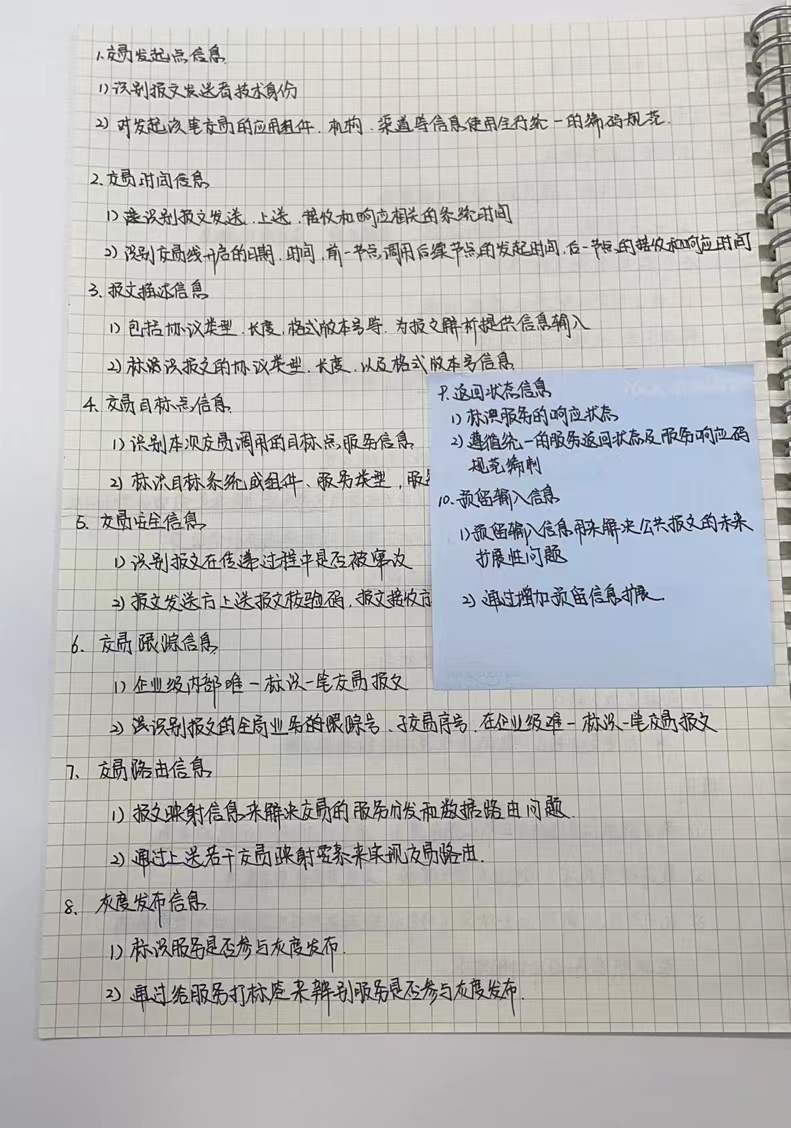 1.交易发起点信息
1) 识别报文发送者技术身份
2) 对发起该笔交易的应用组件、机构、渠道等信息使用全行统一的编码规范.
2.交易时间信息
1) 识别报文发送、上送、接收和响应相关的系统时间
2) 识别交易线开启的日期、时间、前一节点调用后续节点的发起时间、后一节点的接收和响应时间
3.报文描述信息
1) 包括协议类型、长度、格式版本号等、为报文解析提供信息输入
2) 标识该报文的协议类型、长度、以及格式版本号信息
4.交易目标点信息
1) 识别本次交易调用的目标点服务信息
2) 标识目标系统或组件、服务类型,服
5. 交易安全信息
1) 识别报文在传递过程中是否被窜改
2) 报文发送方上送报文核验码,报文接收方
6. 交易跟踪信息
1) 企业级内部唯一标识一笔交易报文
2) 识别报文的全局业务跟踪号、子交易序号,在企业级唯一标识一笔交易报文
7、交易路由信息
1) 报文映射信息来解决交易的服务分发和数据路由问题.
2) 通过上送若干交易映射要素来实现交易路由.
8、灰度发布信息
1) 标识服务是否参与灰度发布.
2) 通过给服务打标签来辨别服务是否参与灰度发布.
9.返回状态信息
1) 标识服务的响应状态
2) 遵循统一的服务返回状态及服务响应码
规范编制
10.预留输入信息
1)预留输入信息用来解决公共报文的未来
扩展性问题
2) 通过增加预留信息扩展